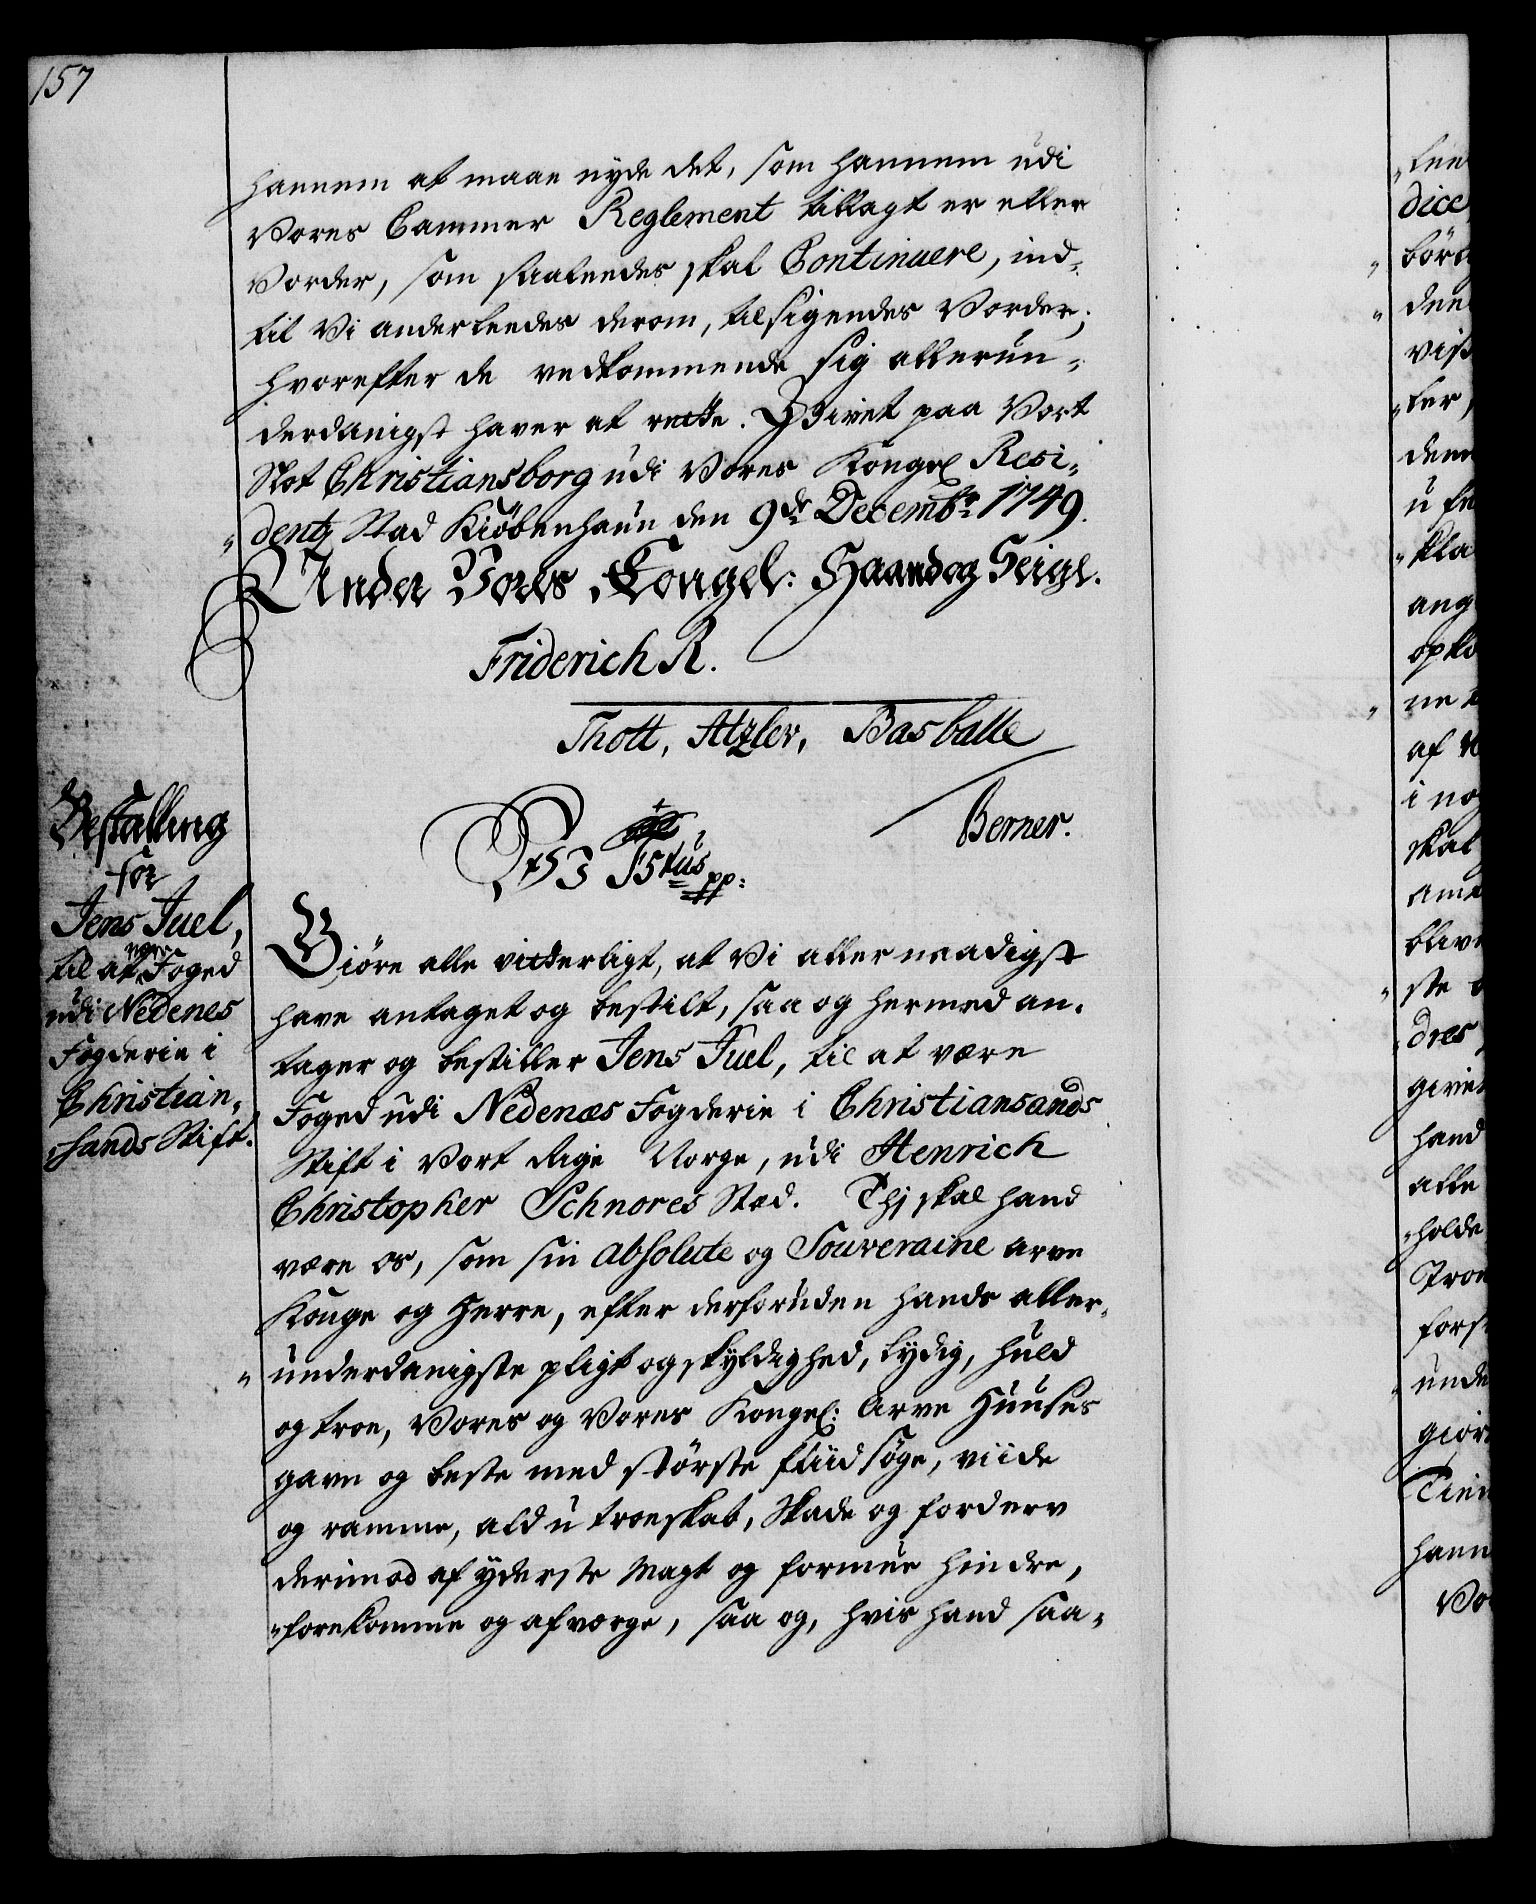 157
hannem at maae nyde det, som hannem udi
Vores Cammer Reglement tillagt er eller
Vorder, som saaleedes skal Continuere, ind-
til Vi anderleedes derom, tilsigendes Vorder;
hvorefter de vedkommende sig allerun-
derdanigst haver at rette. Givet paa Vort
Slot Christiansborg udi Vores Kongel Resi-
"dentz Stad Kiöbenhaun den 9de Decembr 1749.
Under Vores Kongel: Haand og Seigl.
Friderich R.
Thott, Atzlev, Basballe
Berner.
Bestalling
for
Jens Juel,
til at være Foged
udi Nedenes
Fogderie i
Christian-
"sands Stift.
F5tus pp:
Giöre alle vitterligt, at Vi allernaadigst
have antaget og bestilt, saa og hermed an-
tager og bestiller Jens Juel, til at være
Foged udi Nedenæs Fogderie i Christiansands
Stift i Vort Rige Norge, udi Henrich
Christopher Schnores Sted. Thj skal hand
være os, som sin absolute og Souveraine arve
Konge og Herre, efter derforuden hands aller-
"underdanigste pligt og skyldighed, lydig, huld
og troe, Vores og Vores Kongel: Arve Huuses
gavn og beste med störste fliid söge, viide
og ramme, ald utroeskab, Skade og forderv
derimod af yderste Magt og formue hindre,
"forekomme og afværge, saa og, hvis hand saa-